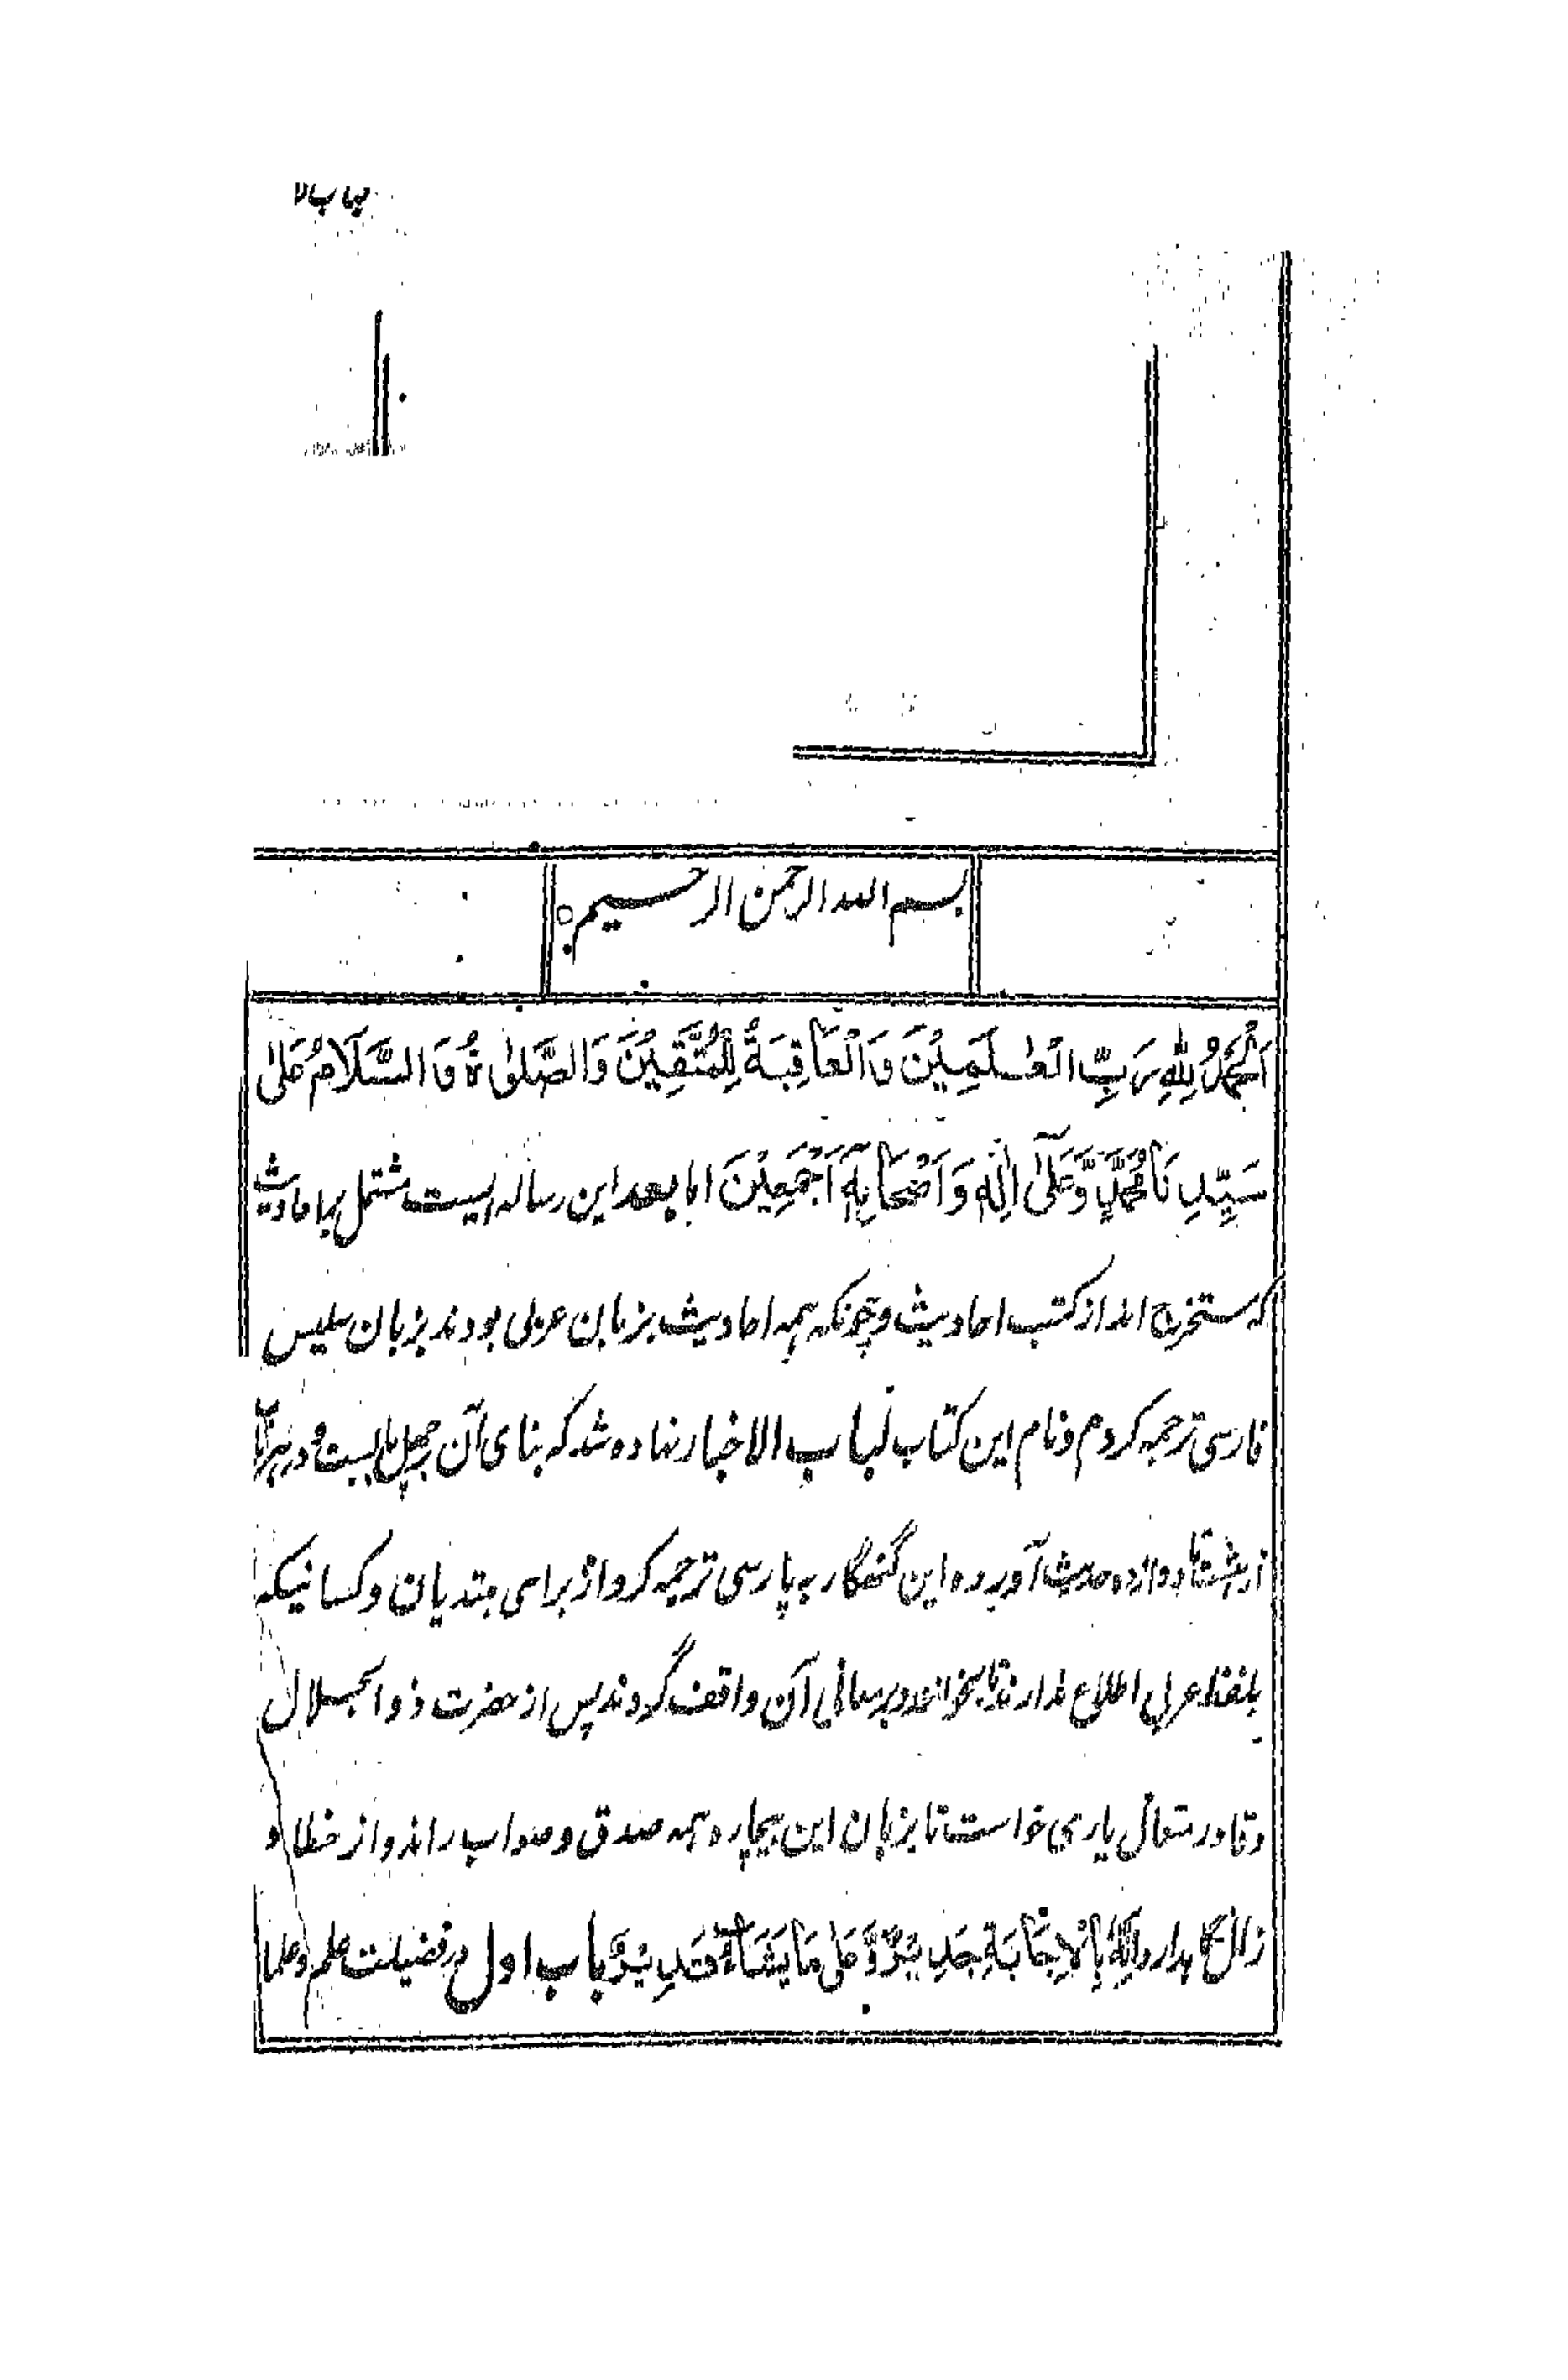 بسم الله الرحمن الرحیم
اَلْحَمْدُ لِلّٰهِ رَبِّ الْعٰلَمِیْنَ وَالْعَاقِبَةُ لِلْمُتَّقِیْنَ وَالصَّلٰوةُ وَالسَّلَامُ عَلٰی
سَیِّدِنَا مُحَمَّدٍ وَّعَلٰٓی اٰلِهٖ وَاَصْحَابِهٖٓ اَجْمَعِیْنَ اما بعد این رساله ایست مشتمل براحادیث
که مستخرج اند از کتب احادیث و چونکه همه احادیث بزبان عربی بودند بزبان سلیس
فارسی ترجمه کردم و نام این کتاب لباب الاخبار نهاده شد که بنای آن چهل باب است و در هر باب
از هشت تا دوازده حدیث آورده این گنهگار به پارسی ترجمه کرد از برای مبتدیان و کسانیکه
بلفظ عربی اطلاع ندارند تا بخوانند و برمعانی آن واقف گردند پس از حضرت ذوالجلال
وقادر متعال یاری خواست تا بزبان این بیچاره همه صدق و صواب راند و از خطا و
زلل نگاهدارد اِنَّهٗ بِالْاِجَابَةِ جَدِیْرٌ وَّ عَلٰی مَا یَشَآءُ قَدِیْرٌ باب اول در فضیلت علم و علما